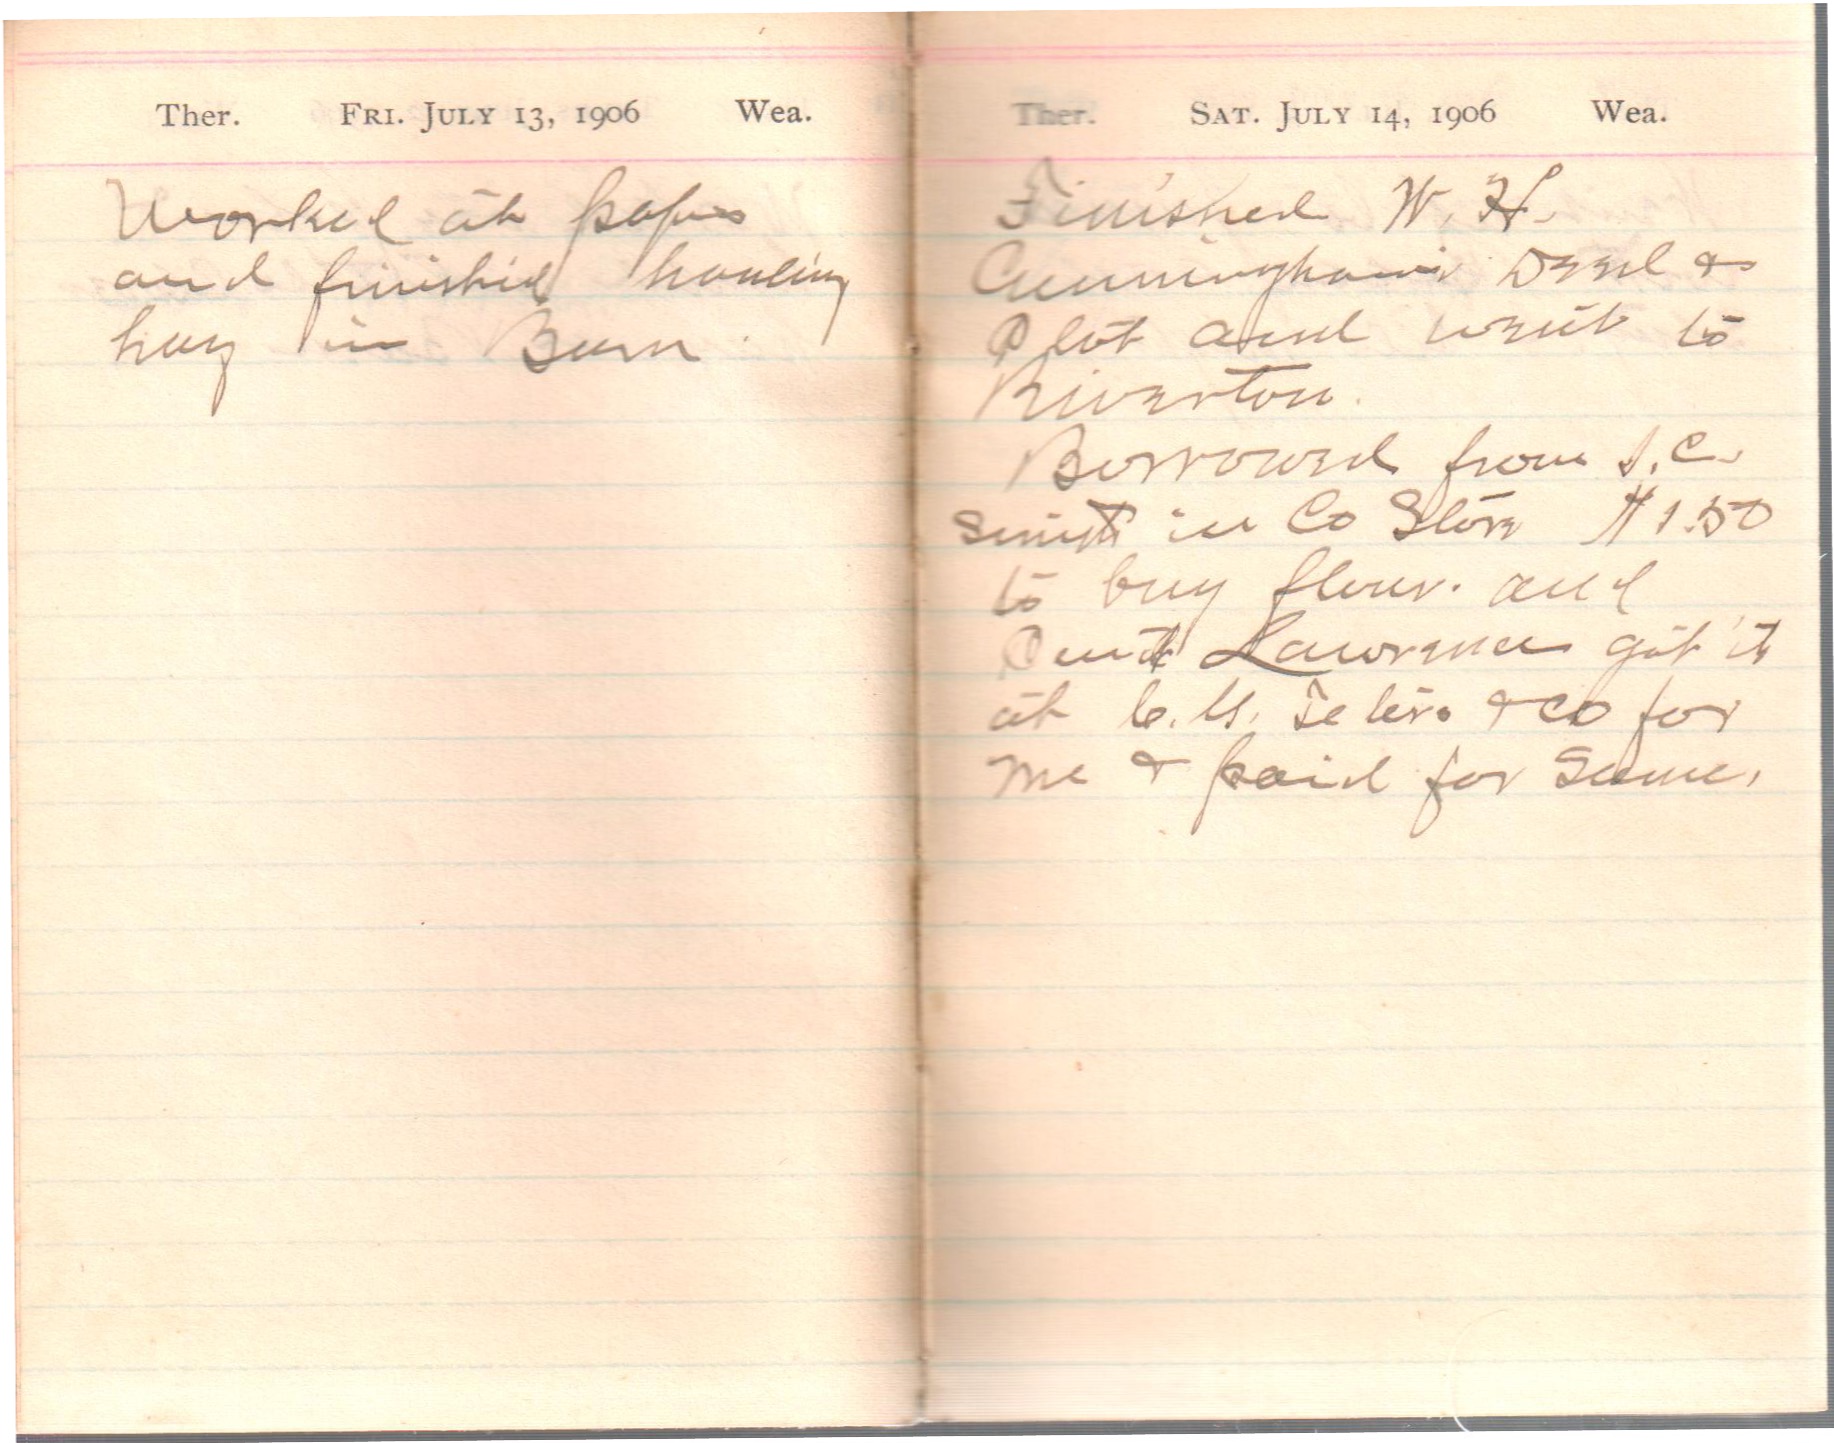 Ther. Fri. July 13, 1906 Wea.
Worked at papers
and finished hauling
hay in Barn.
Ther. Sat. July 14, 1906 Wea.
Finished W. H.
Cunningham's Deed &
Plot and went to
Riverton.
Borrowed from S. C.
Smith in Co Store $1.50
to buy flour. and
Lawrence got it
at & Co for
me & paid for same.